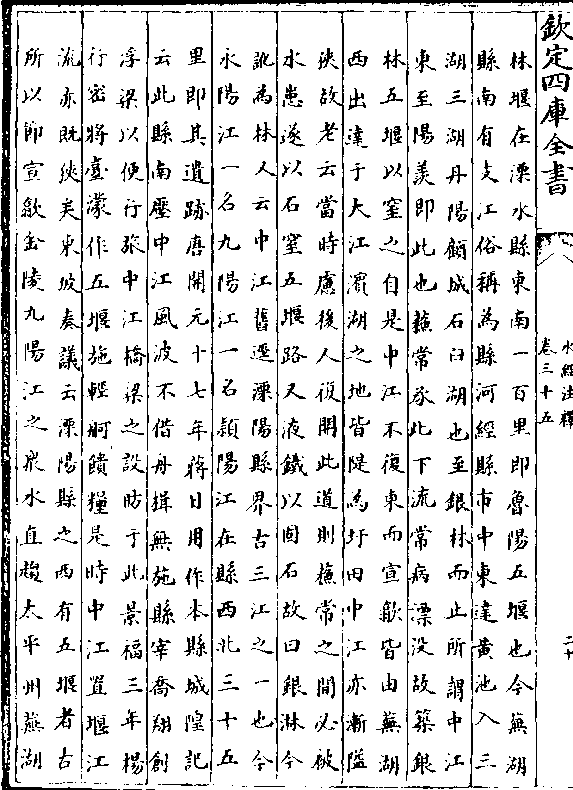 欽定四庫全書
水經注釋
卷三十五
二十
林堰在溧水縣東南一百里即魯陽五堰也今蕪湖
縣南有支江俗稱為縣河經縣市中東達黄池入三
湖三湖丹陽顧城石臼湖也至銀林而止所謂中江
東至陽羨即此也蘇常承此下流常病漂没故築銀
林五堰以窒之自是中江不復東而宣歙皆由蕪湖
西出達于大江濵湖之地皆隄為圩田中江亦漸隘
狹故老云當時慮後人復開此道則蘇常之間必被
水患遂以石窒五堰路又液鐵以固石故曰銀淋今
訛為林又云中江舊逕溧陽縣界古三江之一也今
永陽江一名九陽江一名潁陽江在縣西北三十五
里即其遺跡唐開元十七年蔣日用作本縣城隍記
云此縣南壓中江風波不借舟揖無施縣宰喬翔創
浮梁以便行旅中江橋梁之設昉于此景福三年楊
行密將臺濛作五堰施輕舸饋糧是時中江置堰江
流亦既狹矣東坡奏議云溧陽縣之西有五堰者古
所以節宣歙金陵九陽江之衆水直趨太平州蕪湖